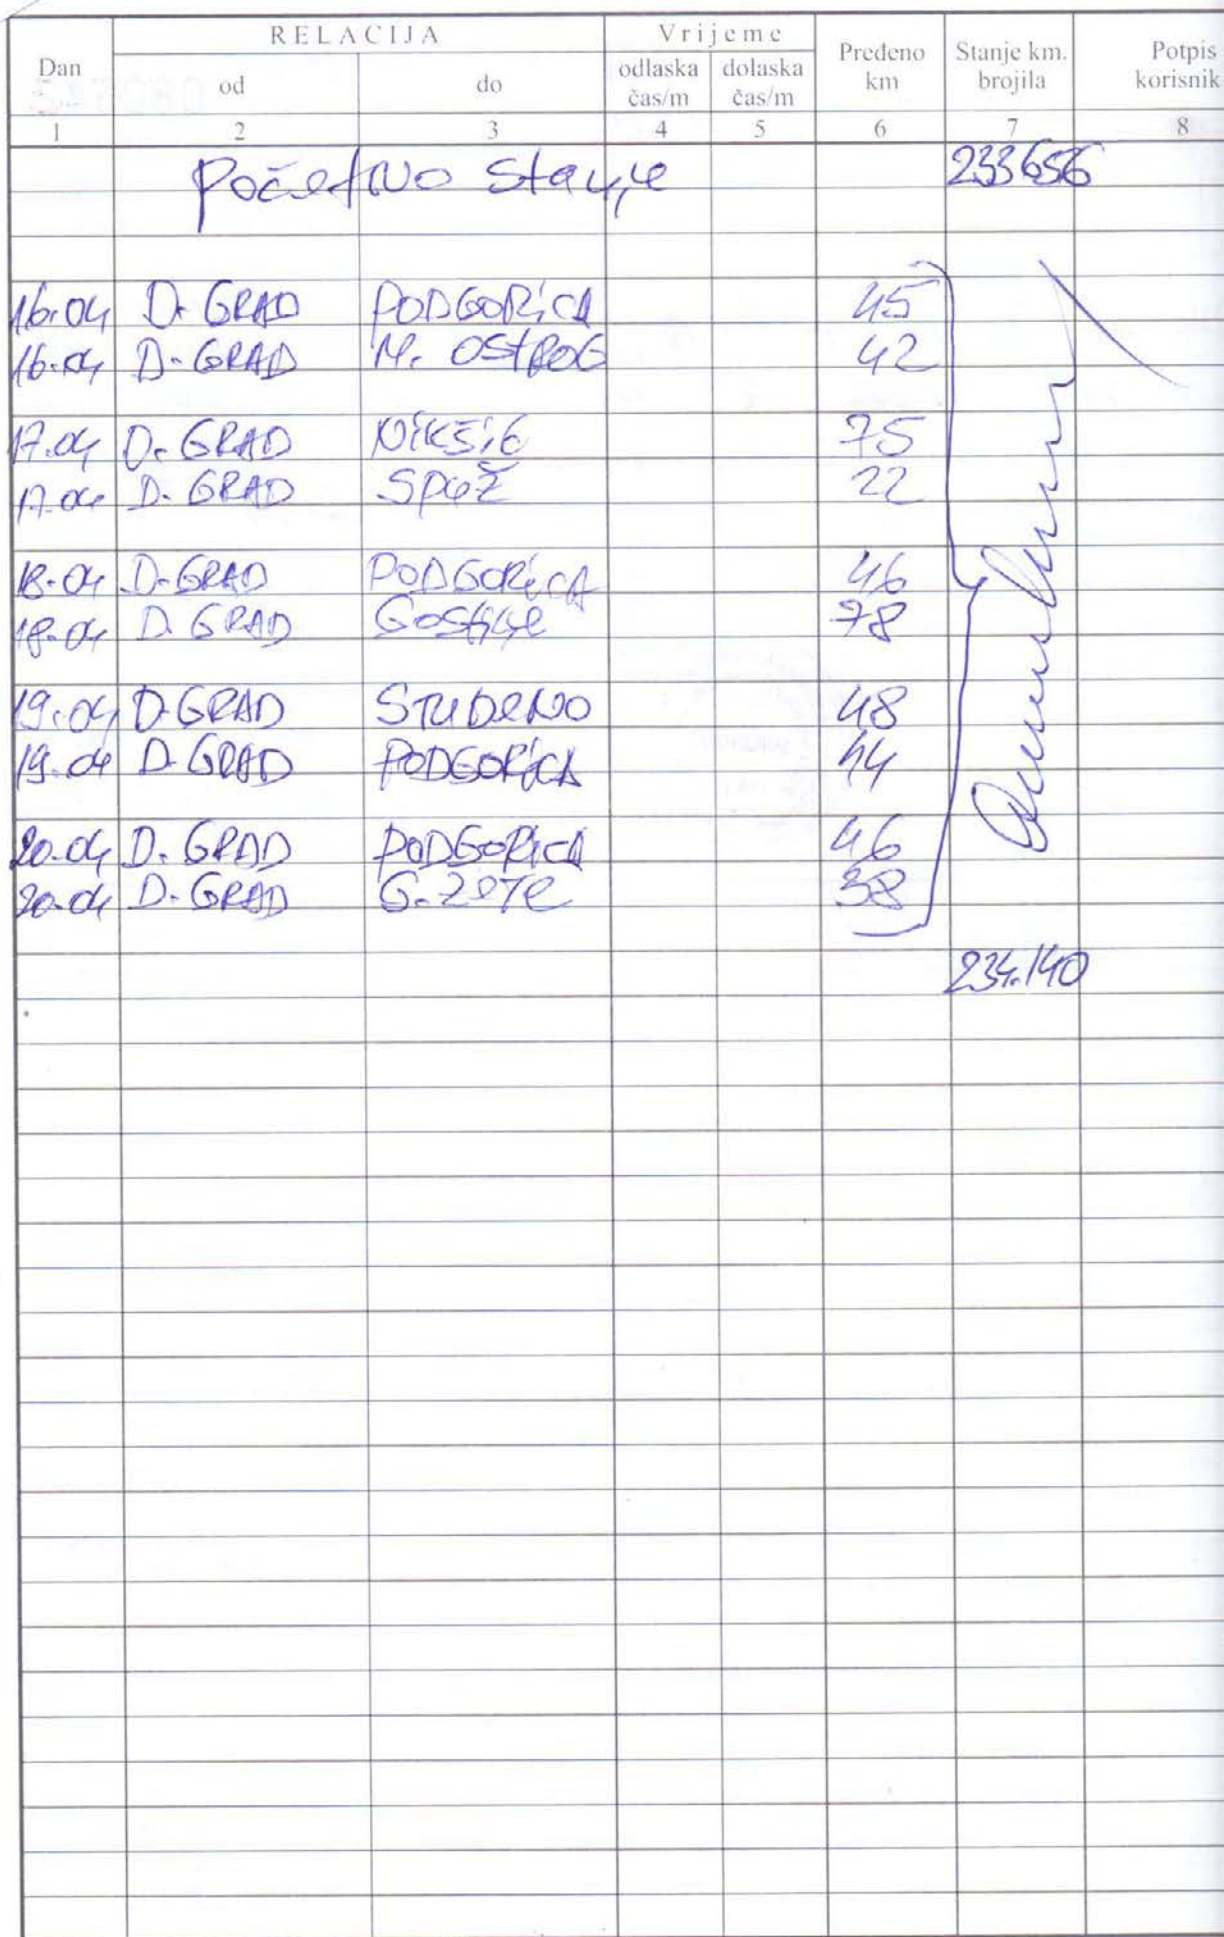 RELACIJA Vrijeme
Dan od do odlaska čas/m dolaska čas/m Pređeno km Stanje km. brojila Potpis korisnik
1 2 3 4 5 6 7 8
Početno stanje 233656
16.04 D. GRAD PODGORICA 45
16.04 D. GRAD M. OSTROG 42
17.04 D. GRAD NIKŠIĆ 75
17.04 D. GRAD SPUŽ 22
18.04 D. GRAD PODGORICA 46
18.04 D. GRAD Gostilje 78
19.04 D. GRAD STUDENO 48
19.04 D. GRAD PODGORICA 44
20.04 D. GRAD PODGORICA 46
20.04 D. GRAD G. Zete 38
234.140